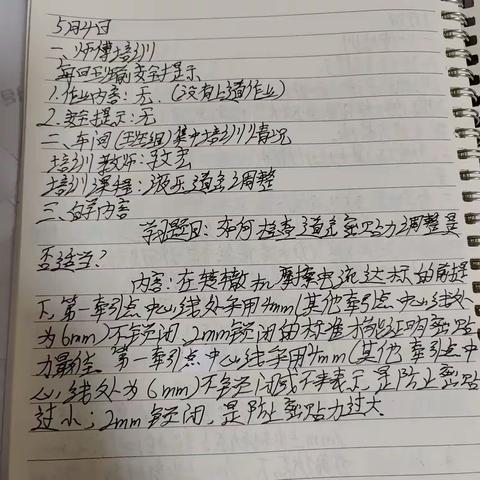 5月4日
一、师傅培训
每日班前安全提示
1.作业内容:无.(没有上道作业)
2.安全提示:无
二、车间(班组)集中培训情况
培训教师:王文宏
培训课程:液压道岔调整
三、自学内容
学习题目:如何检查道岔密贴力调整是
否适当?
内容:在转辙机摩擦电流达标的前提
下,第一牵引点中心线处采用4mm(其他牵引点中心线处
为6mm)不锁闭,2mm锁闭的标准才能证明密贴
力最佳.第一牵引点中心线采用4mm(其他牵引点中
心线处为6mm)不锁闭或不表示,是防止密贴
过小;2mm锁闭,是防止密贴力过大